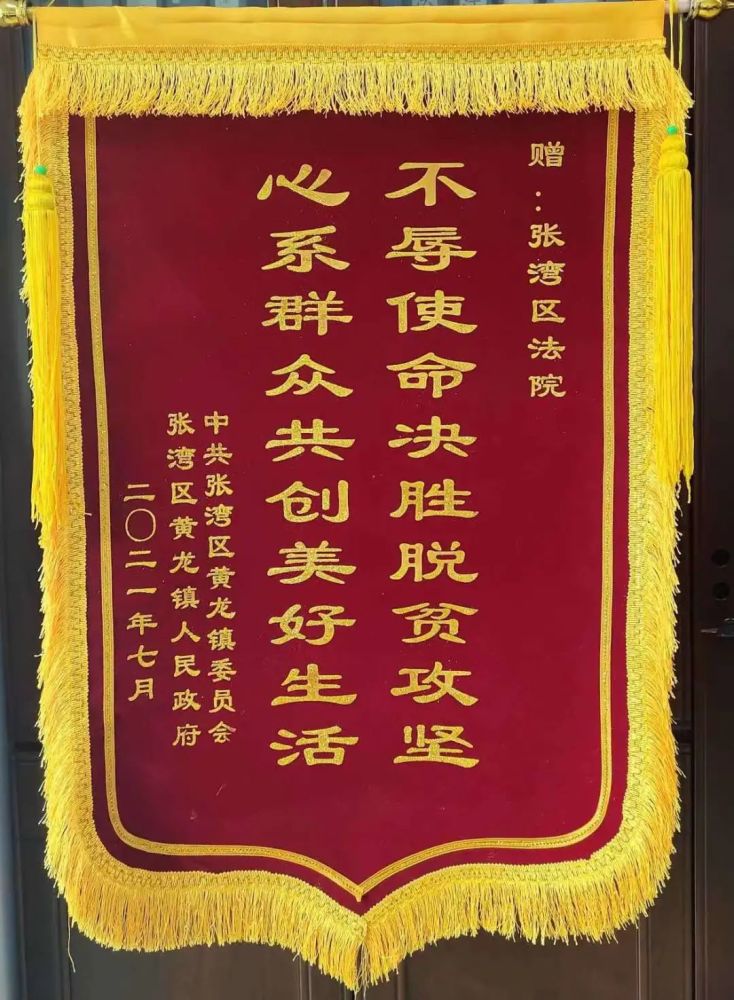 赠：张湾区法院
不辱使命决胜脱贫攻坚
心系群众共创美好生活
中共张湾区黄龙镇委员会
张湾区黄龙镇人民政府
二〇二一年七月